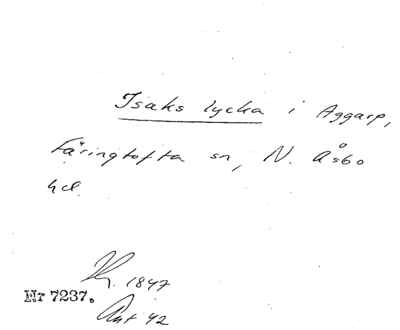 Isaks lycka i Aggarp,
Färingtofta sn, N. Åsbo
hd.
1847
Nr 7237.
42